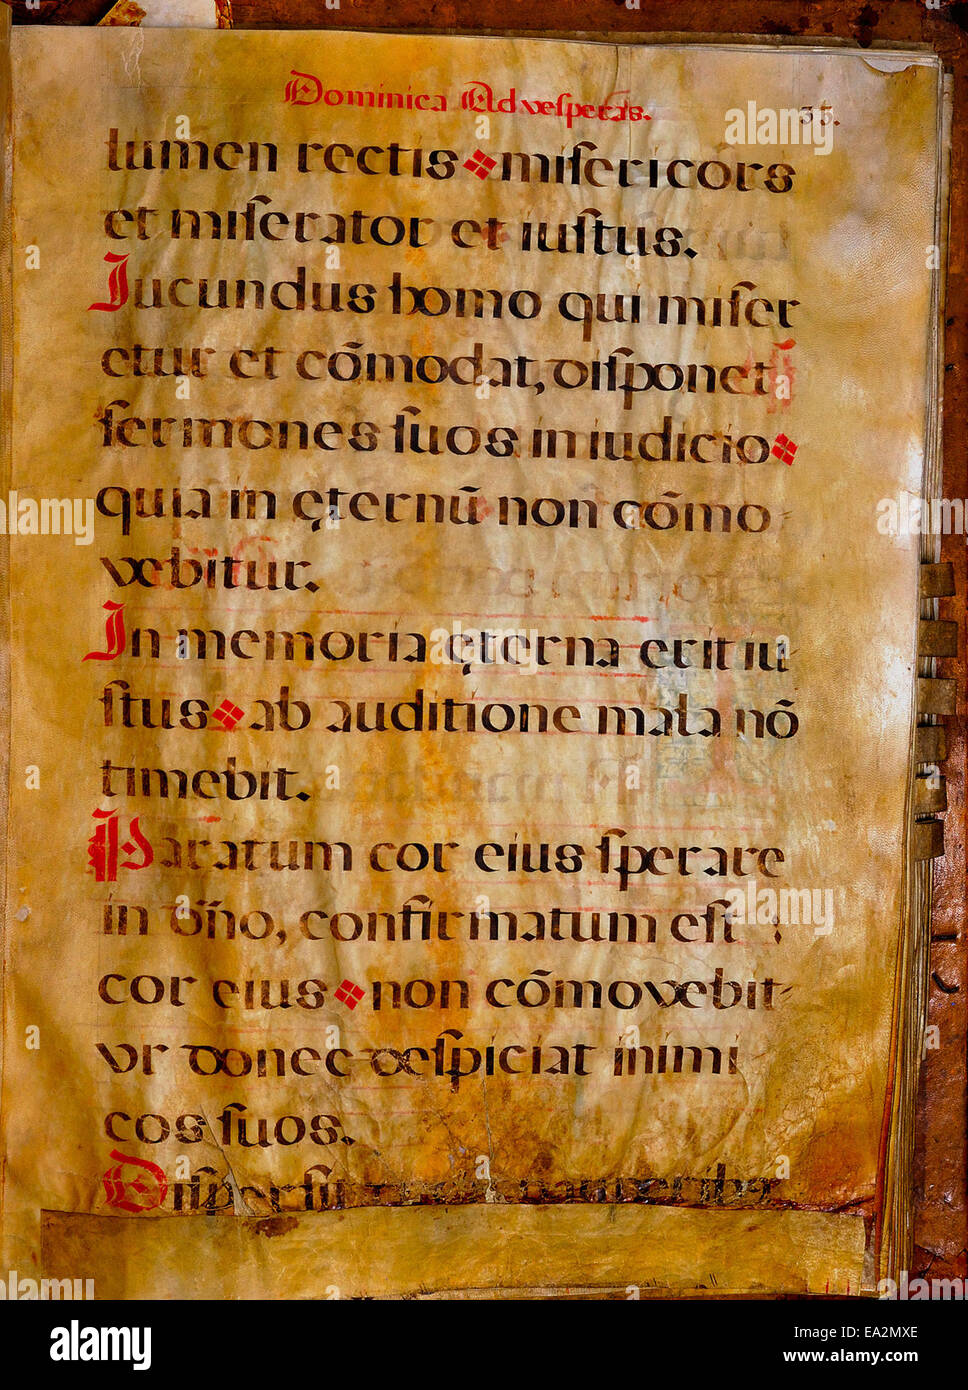 Dominica Ad vesperas. 35.
lumen rectis misericors
et miserator et iustus.
Jucundus homo qui miser
etur et cõmodat, disponet
sermones suos in iudicio
quia in ęternũ non cõmo
vebitur.
In memoria ęterna erit iu
stus ab auditione mala nõ
timebit.
Paratum cor eius sperare
in dño, confirmatum est
cor eius non cõmovebit
vr donec despiciat inimi
cos suos.
Dispersit
alamy
Image ID: EA2MXE
www.alamy.com